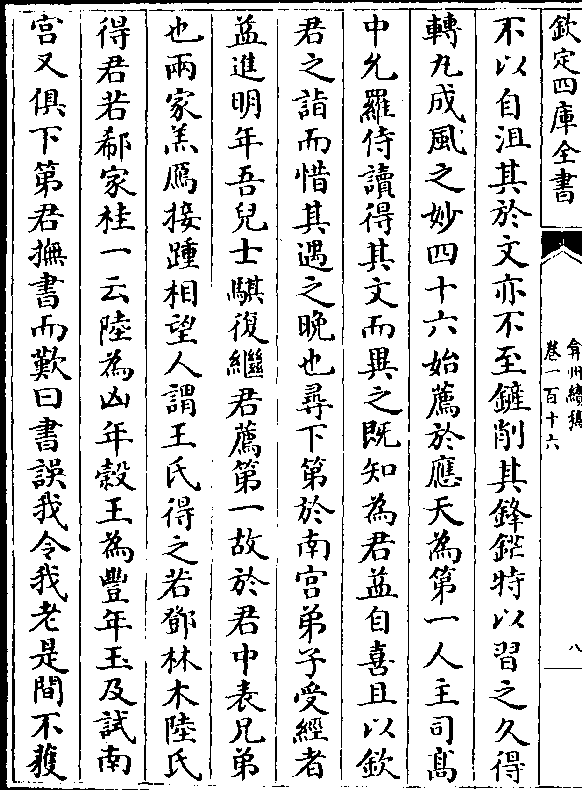 欽定四庫全書
弇州續稿
卷一百十六
八
不以自沮其於文亦不至鏟削其鋒鋩特以習之久得
轉丸成風之妙四十六始薦於應天為第一人主司髙
中允羅侍讀得其文而異之既知為君益自喜且以欽
君之詣而惜其遇之晚也尋下第於南宫弟子受經者
益進明年吾兒士騏復繼君薦第一故於君中表兄弟
也兩家羔鴈接踵相望人謂王氏得之若鄧林木陸氏
得君若郗家桂一云陸為凶年榖王為豐年玉及試南
宫又俱下第君撫書而歎曰書誤我令我老是間不獲